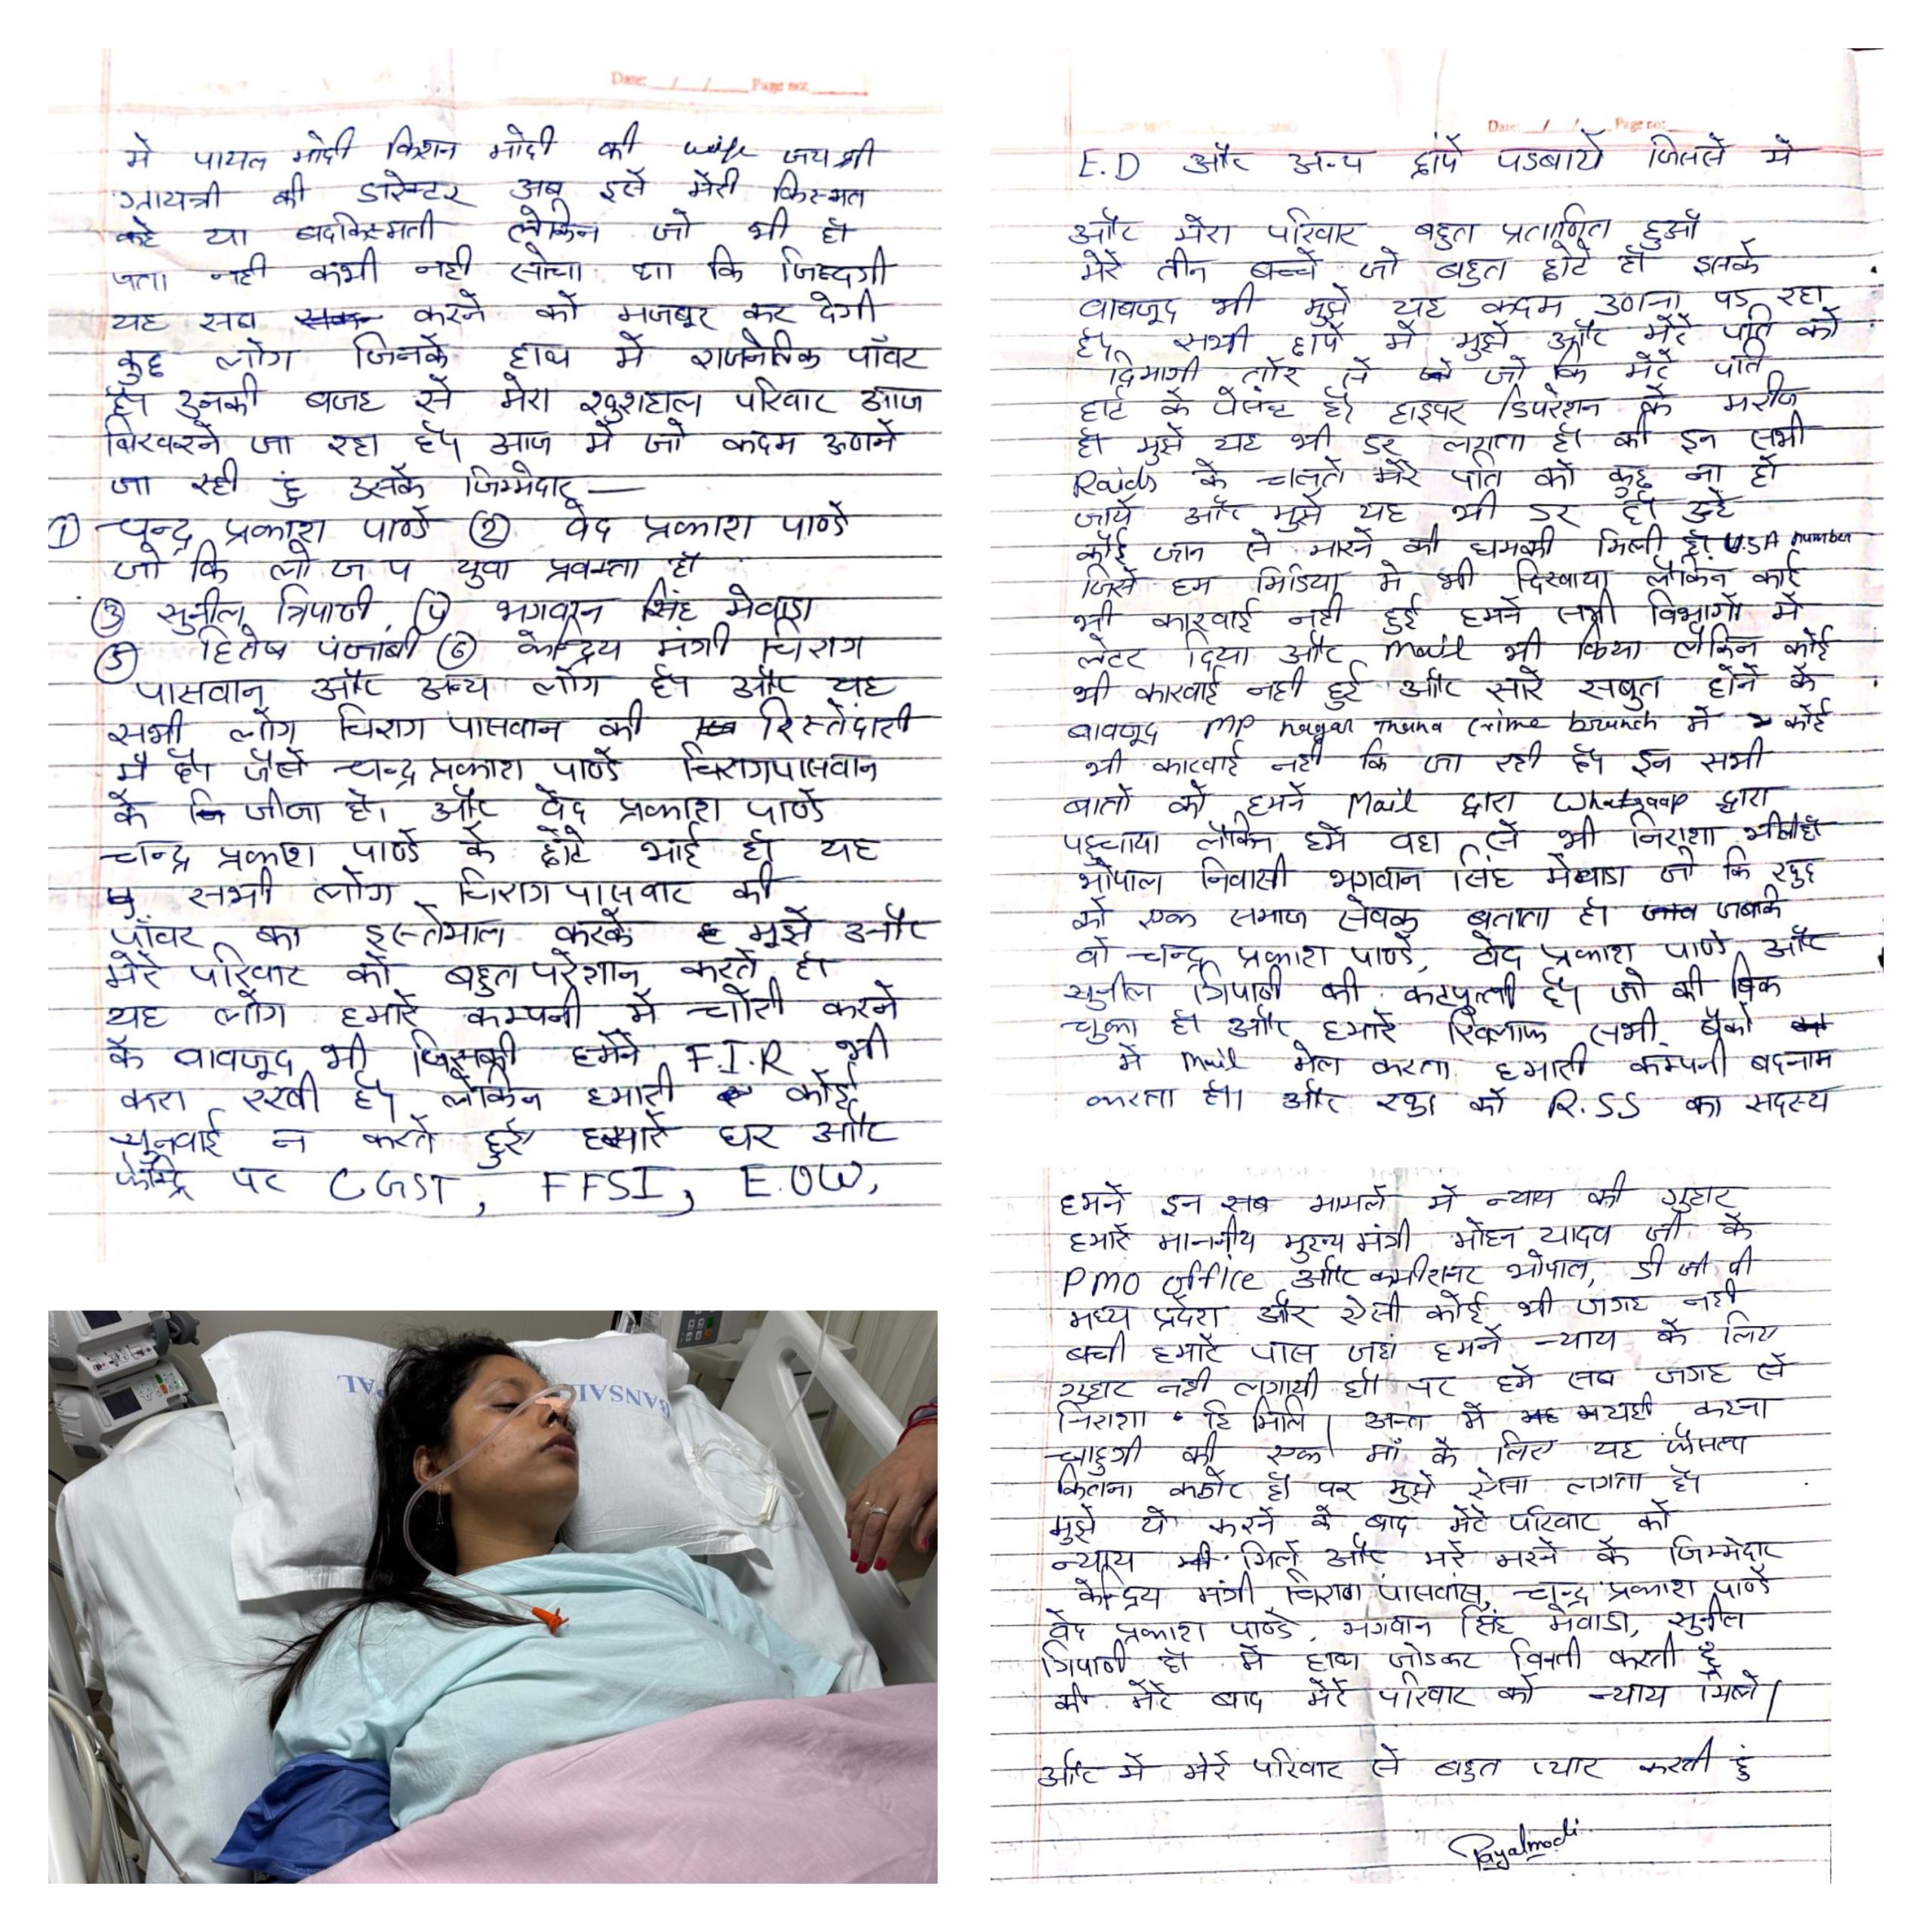 Date: __/__/__ Page no: ____
मे पायल मोदी किशन मोदी की wife जय श्री
गायत्री की डारेक्टर अब इसे मेरी किस्मत
कहे या बदकिस्मती लेकिन जो भी हो
पता नही कभी नही सोचा था कि जिन्दगी
यह सब करने को मजबूर कर देगी
कुछ लोग जिनके हाथ में राजनेतिक पॉवर
है उनकी बजह से मेरा खुशहाल परिवार आज
बिखरने जा रहा है आज में जो कदम उठाने
जा रही हुं उसके जिम्मेदार —
① चन्द्र प्रकाश पाण्डे ② वेद प्रकाश पाण्डे
जो कि लो ज प युवा प्रवक्ता है
③ सुनील त्रिपाठी, ④ भगवान सिंह मेवाडा
⑤ हितेष पंजाबी ⑥ केन्द्रिय मंत्री चिराग
पासवान और अन्य लोग है और यह
सभी लोग चिराग पासवान की रिस्तेदारी
मे है। जैसे चन्द्र प्रकाश पाण्डे चिराग पासवान
के जीजा है। और वेद प्रकाश पाण्डे
चन्द्र प्रकाश पाण्डे के छोटे भाई है यह
सभी लोग चिराग पासवाट की
पॉवर का इस्तेमाल करके मुझे और
मेरे परिवार को बहुत परेशान करते है।
यह लोग हमारे कम्पनी में चोरी करने
के वावजूद भी जिसकी हमने F.I.R भी
करा रखी है लेकिन हमारी कोई
सुनवाई न करते हुऐ हमारे घर और
पर CGST, FFSI, E.OW,
Date: __/__/__ Page no: ____
E.D और अन्य छापे पडबाये जिससे मे
और मेरा परिवार बहुत प्रताणित हुआ
मेरे तीन बच्चे जो बहुत छोटे है इसके
वाबजूद भी मुझे यह कदम उठाना पड रहा
है सभी छापे में मुझे और मेरे पति को
दिमागी तोर से जो कि मेरे पति
हार्ट के पेसेंट है। हाइपर डिपरेशन के मरीज
है। मुझे यह भी डर लगता है। की इन सभी
Raids के चलते मेरे पति को कुछ ना हो
जाये और मुझे यह भी डर है उन्हे
कोई जान से मारने की धमकी मिली है। U.SA number
जिसे हम मिडिया मे भी दिखाया लेकिन कोई
भी कारवाई नही हुई हमने सभी विभागो में
लेटर दिया और mail भी किया लेकिन कोई
भी कारवाई नही हुई और सारे सबुत होने के
बावजूद MP nagar thana crime branch में कोई
भी कारवाई नही कि जा रही है इन सभी
बातो को हमने Mail द्वारा Whatsaap द्वारा
पहुचाया लेकिन हमे वहा से भी निराशा मीली है
भोपाल निवासी भगवान सिंह मेवाडा जो कि खुद
को एक समाज सेवक बताता है। जबकि
वो चन्द्र प्रकाश पाण्डे, वेद प्रकाश पाण्डे और
सुनील त्रिपाठी की कटपुतली है जो की बिक
चुका है और हमारे खिलाफ सभी बैंको
में mail मेल करता हमारी कम्पनी बदनाम
करता है। और को R.SS का सदस्य
हमने इन सब मामले में न्याय की गुहार
हमारे माननीय मुख्य मंत्री मोहन यादव जी के
PMO office और कमीशनर भोपाल, डी जी पी
मध्य प्रदेश और ऐसी कोई भी जगह नही
बची हमारे पास जहां हमने न्याय के लिए
गुहार नही लगायी हो। पर हमे सब जगह से
निराशा हि मिलि। अन्त में यही कहना
चाहुगी की एक माँ के लिए यह फैसला
कितना कठोर है। पर मुझे ऐसा लगता है।
मुझे ये करने के बाद मेरे परिवार को
न्याय मिले और मेरे मरने के जिम्मेदार
केन्द्रिय मंत्री चिराग पासवास, चन्द्र प्रकाश पाण्डे
वेद प्रकाश पाण्डे, भगवान सिंह मेवाडा, सुनील
त्रिपाठी है। में हाथ जोडकर विनती करती हूँ
की मेरे बाद मेरे परिवार को न्याय मिले।
और में मेरे परिवार से बहुत प्यार करती हुं
Payalmodi
BANSAL